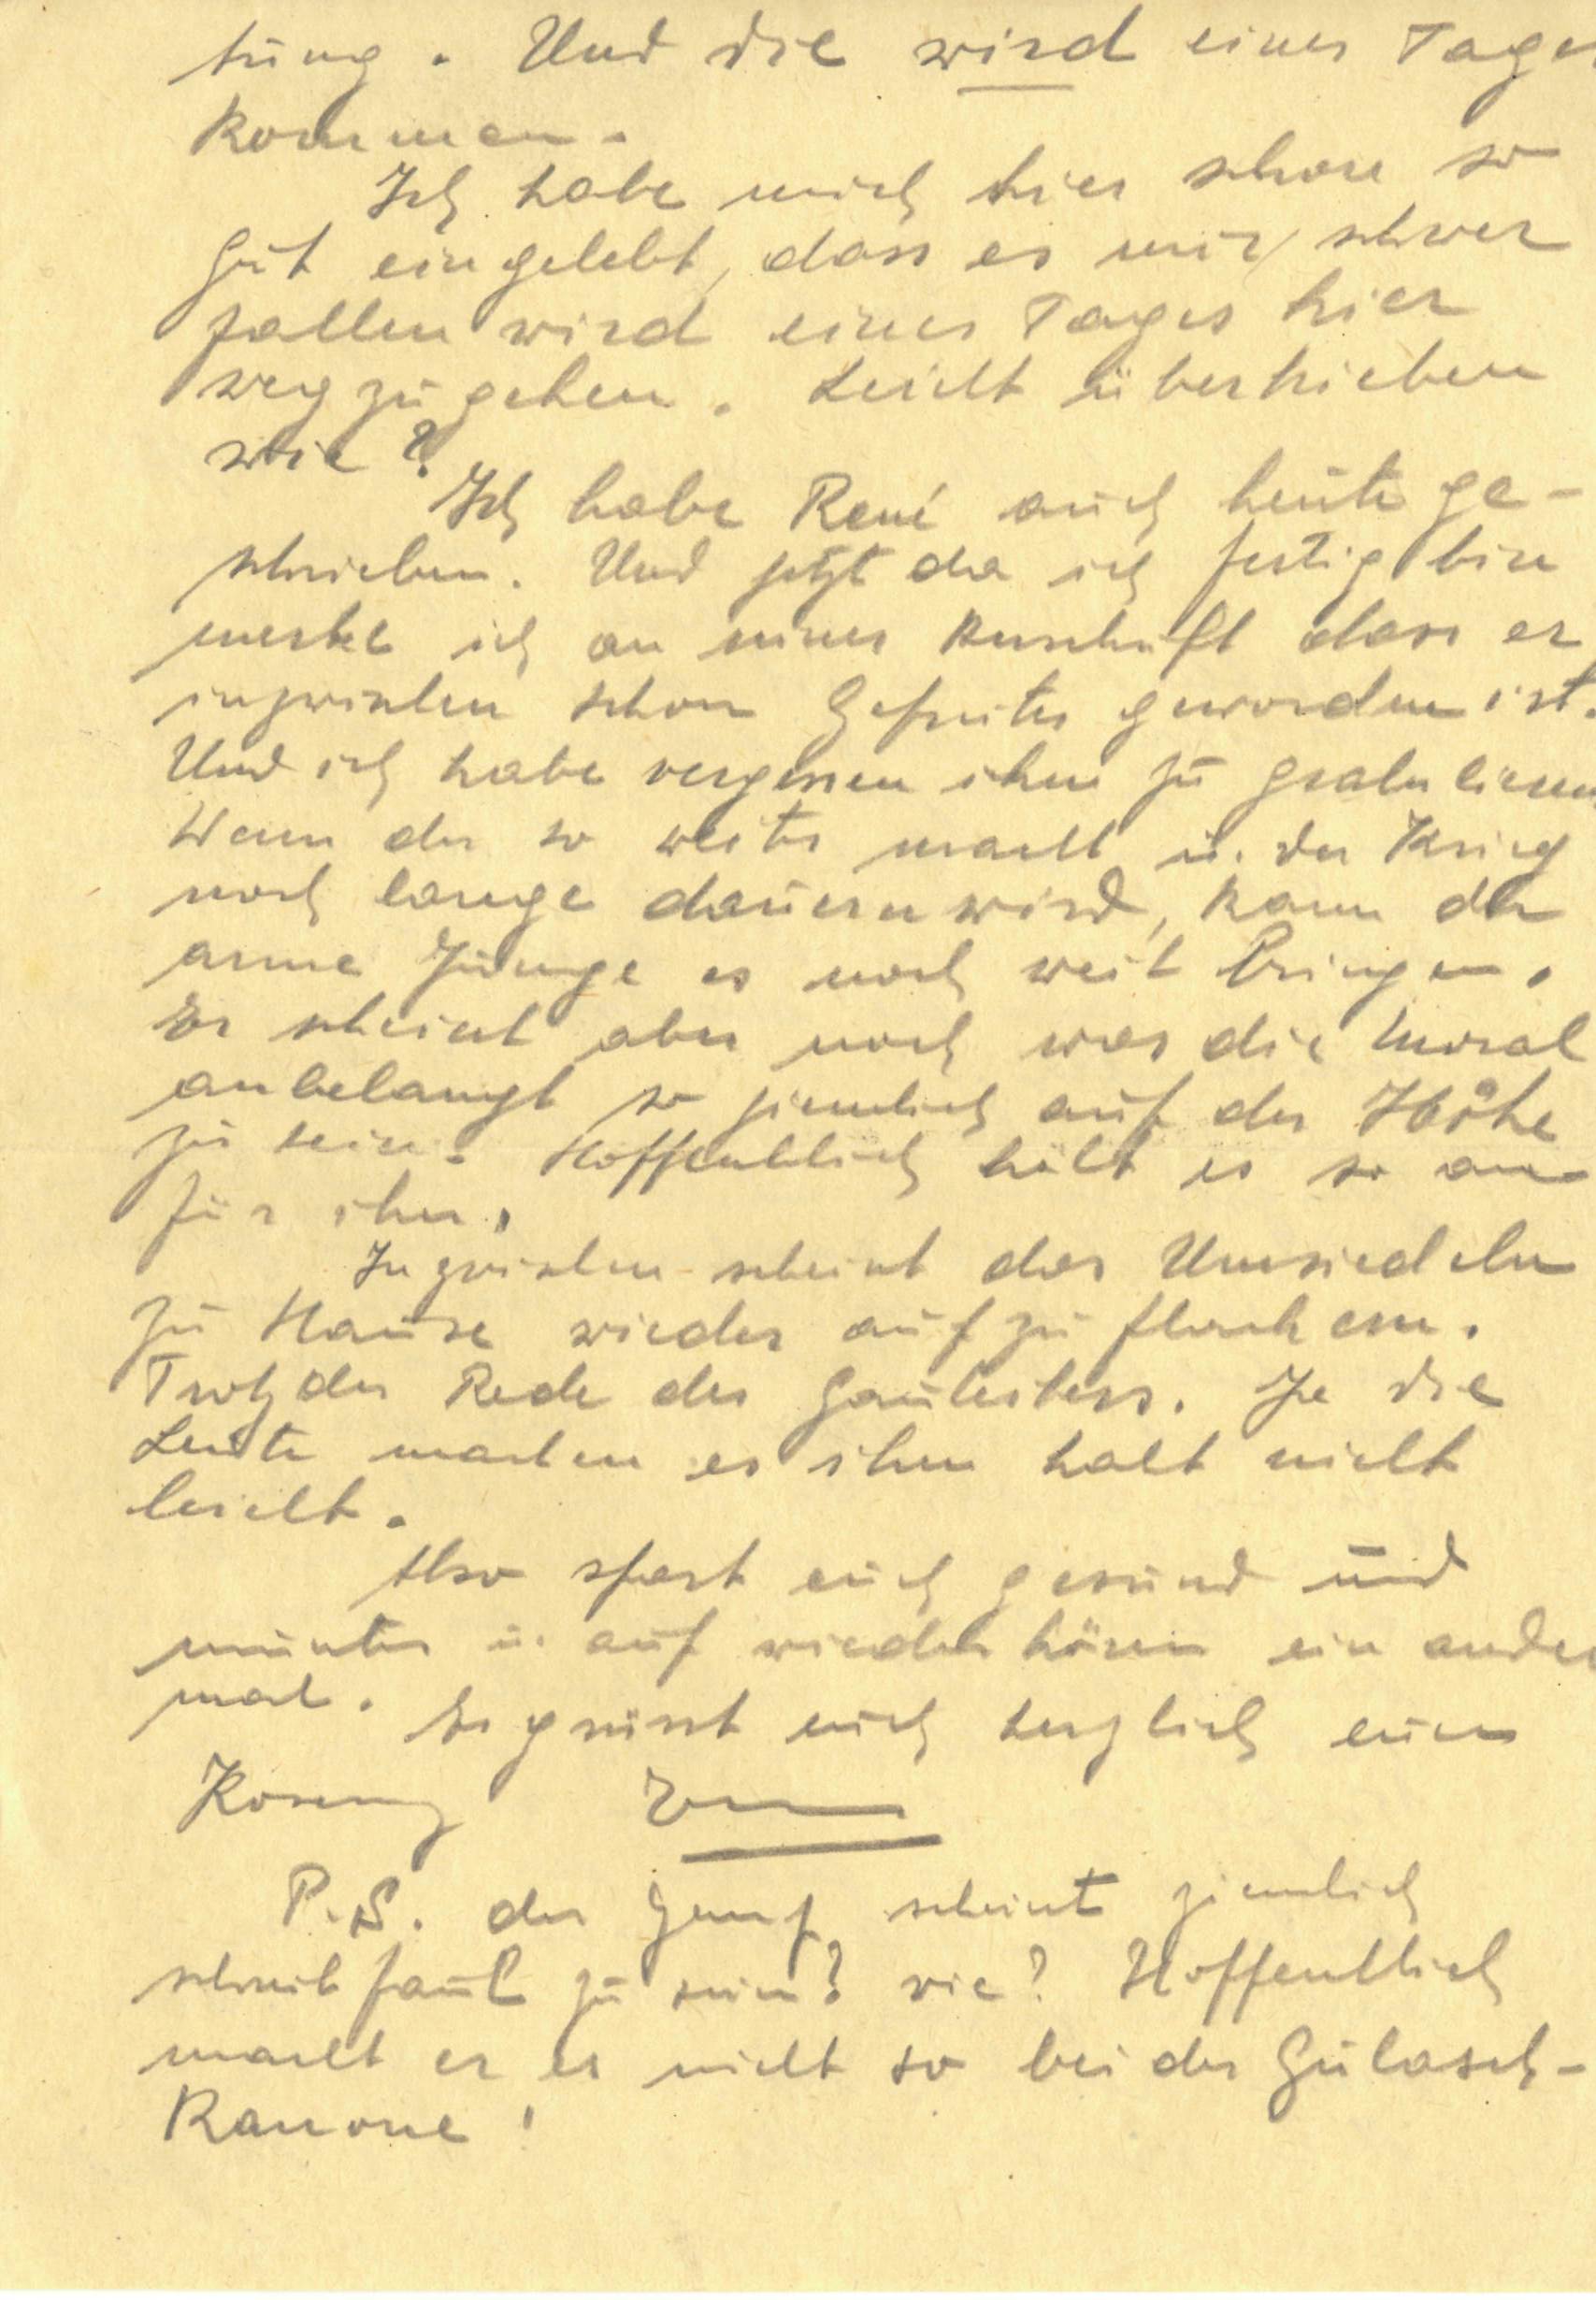 tung. Und die wird eines Tages
kommen.
Ich habe mich hier schon so
gut eingelebt, dass es mir schwer
fallen wird eines Tages hier
weg zu gehen. Leicht übertrieben
wie?
Ich habe René auch heute ge-
schrieben. Und jetzt da ich fertig bin
merke ich an seiner Anschrift dass er
inzwischen schon Gefreiter geworden ist.
Und ich habe vergessen ihm zu gratulieren
Wenn der so weiter macht u. der Krieg
noch lange dauern wird, kann der
arme Junge es noch weit bringen.
Er scheint aber noch was die Moral
anbelangt so ziemlich auf der Höhe
zu sein. Hoffentlich hält es so an
für ihn.
Inzwischen scheint das Umsiedeln
zu Hause wieder auf zu flackern.
Trotz der Rede des Gauleiters. Ja die
Leute machen es ihm halt nicht
leicht.
Also spart euch gesund und
munter u. auf wiederhören ein ander
mal. Es grüsst euch herzlich euer
P.S. der scheint ziemlich
schreibfaul zu sein? wie? Hoffentlich
macht er es nicht so bei der Gulasch-
Kanone!